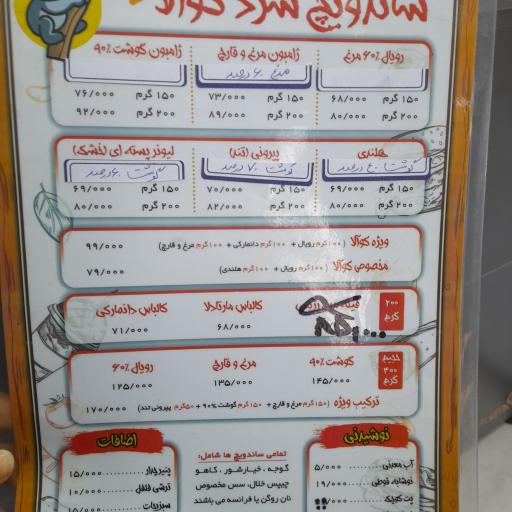 ساندویچ سرد کوالا
رویال ۶۰٪ مرغ
ژامبون مرغ و قارچ
ژامبون گوشت ۹۰٪
مرغ ۶۰ درصد
۱۵۰ گرم ۶۸/۰۰۰
۱۵۰ گرم ۷۳/۰۰۰
۱۵۰ گرم ۷۶/۰۰۰
۲۰۰ گرم ۸۰/۰۰۰
۲۰۰ گرم ۸۹/۰۰۰
۲۰۰ گرم ۹۲/۰۰۰
هلندی
پپرونی (تند)
لیونر پسته ای (خشک)
گوشت ۶۰ درصد
گوشت ۷۰ درصد
گوشت ۶۰ درصد
۱۵۰ گرم ۶۹/۰۰۰
۱۵۰ گرم ۷۰/۰۰۰
۱۵۰ گرم ۶۹/۰۰۰
۲۰۰ گرم ۸۰/۰۰۰
۲۰۰ گرم ۸۲/۰۰۰
۲۰۰ گرم ۸۰/۰۰۰
ویژه کوآلا (۱۰۰گرم رویال + ۱۰۰گرم دانمارکی + ۱۰۰گرم مرغ و قارچ) ۹۹/۰۰۰
مخصوص کوآلا (۱۰۰گرم رویال + ۱۰۰گرم هلندی) ۷۹/۰۰۰
۲۰۰ گرم
کالباس مارتادلا
کالباس دانمارکی
۶۸/۰۰۰
۷۱/۰۰۰
حجیم ۳۰۰ گرم
گوشت ۹۰٪
مرغ و قارچ
رویال ۶۰٪
۱۴۵/۰۰۰
۱۳۵/۰۰۰
۱۲۵/۰۰۰
ترکیب ویژه (۱۵۰گرم مرغ و قارچ + ۱۵۰گرم گوشت ۹۰٪ + ۵۰گرم پپرونی تند) ۱۷۰/۰۰۰
نوشیدنی
آب معدنی ۵/۰۰۰
نوشابه قوطی ۱۹/۰۰۰
تمامی ساندویچ ها شامل:
گوجه ، خیارشور ، کاهو
چیپس خلال، سس مخصوص
نان روگن یا فرانسه می باشند
اضافات
پنیر چدار ۱۵/۰۰۰
ترشی فلفل ۱۰/۰۰۰
سبزیجات ۱۵/۰۰۰